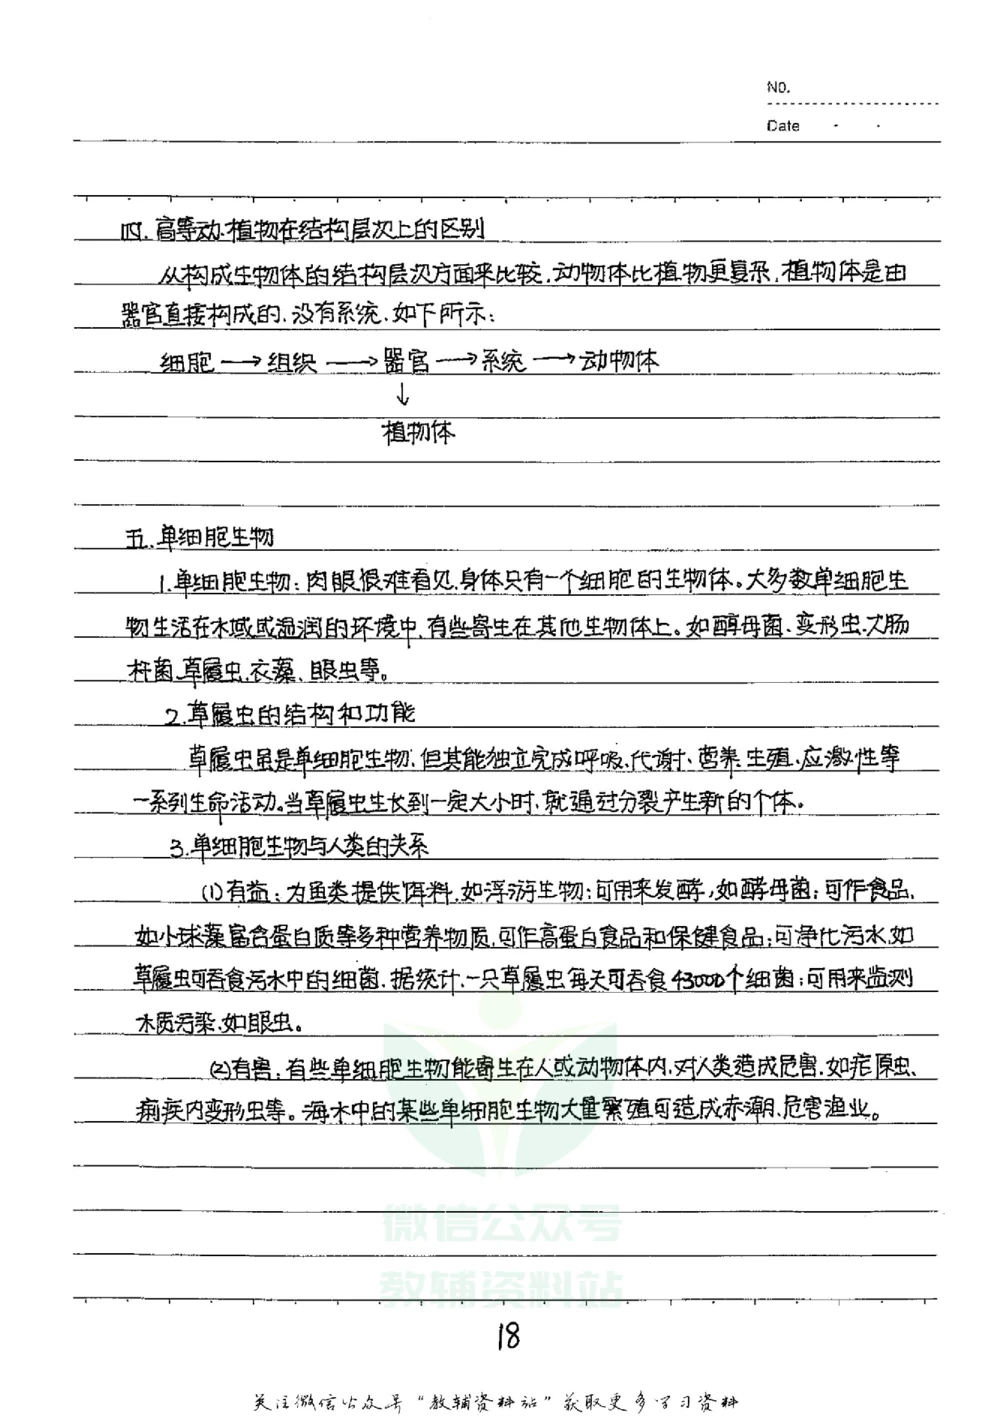 No.
Date
四.高等动.植物在结构层次上的区别
从构成生物体的结构层次方面来比较,动物体比植物更复杂,植物体是由
器官直接构成的,没有系统,如下所示:
细胞→组织→器官→系统→动物体
↓
植物体
五.单细胞生物
1.单细胞生物:肉眼很难看见,身体只有一个细胞的生物体。大多数单细胞生
物生活在水域或湿润的环境中,有些寄生在其他生物体上。如酵母菌、变形虫、大肠
杆菌、草履虫、衣藻、眼虫等。
2.草履虫的结构和功能
草履虫虽是单细胞生物,但其能独立完成呼吸、代谢、营养、生殖、应激性等
一系列生命活动。当草履虫生长到一定大小时,就通过分裂产生新的个体。
3.单细胞生物与人类的关系
(1)有益:为鱼类提供饵料,如浮游生物;可用来发酵,如酵母菌;可作食品,
如小球藻富含蛋白质等多种营养物质,可作高蛋白食品和保健食品;可净化污水,如
草履虫可吞食污水中的细菌,据统计,一只草履虫每天可吞食43000个细菌;可用来监测
水质污染,如眼虫。
(2)有害:有些单细胞生物能寄生在人或动物体内,对人类造成危害,如疟原虫、
痢疾内变形虫等。海水中的某些单细胞生物大量繁殖可造成赤潮,危害渔业。
微信公众号
教辅资料站
18
关注微信公众号"教辅资料站"获取更多学习资料